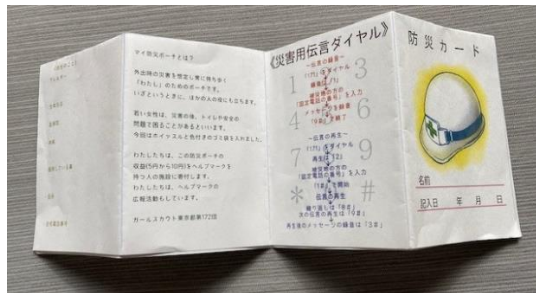 マイ防災ポーチとは?
外出時の災害を想定し常に持ち歩く
「わたし」のためのポーチです。
いざというときに、ほかの人の役にも立ちます。
若い女性は、災害の後、トイレや安全の
問題で困ることがあるといいます。
今回はホイッスルと色付きのゴミ袋を入れました。
わたしたちは、この防災ポーチの
収益(5円から10円)をヘルプマークを
持つ人の施設に寄付します。
わたしたちは、ヘルプマークの
広報活動もしています。
ガールスカウト東京都第172団
《災害用伝言ダイヤル》
~伝言の録音~
「171」をダイヤル
録音は「1」
被災地の方の
「固定電話の番号」を入力
メッセージを録音
「9#」を終了
~伝言の再生~
「171」をダイヤル
再生は「2」
被災地の方の
「固定電話の番号」を入力
「1#」を開始
伝言の再生
繰り返しは「8#」
次の伝言の再生は「9#」
再生後のメッセージの録音は「3#」
1 3
4 6
7 9
* #
防災カード
名前
記入日 年 月 日